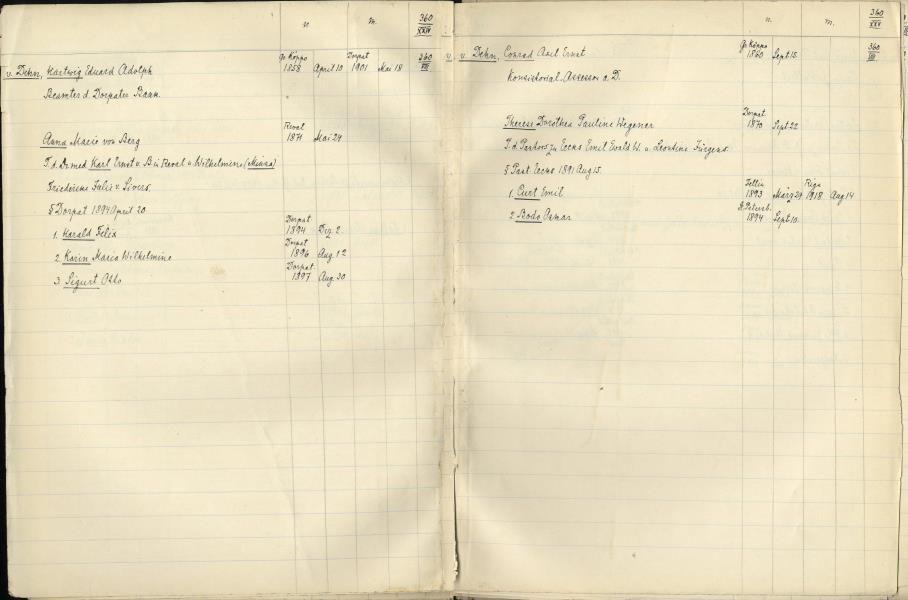 n. m. 360
XXIV
Gr. Köppo Dorpat 360
v. Dehn, Hartwig Eduard Adolph 1858 April 10 1901 Mai 18 VII
Beamter d. Dorpater Bank.
Reval
Anna Marie von Berg 1871 Mai 24
T. d. Dr. med Karl Ernst v. B. in Reval u. Wilhelmine (Minna)
Friederike Julie v. Sivers.
§ Dorpat 1894 April 20
Dorpat
1. Harald Felix 1894 Dez. 2
Dorpat
2. Karin Maria Wilhelmine 1896 Aug. 12
Dorpat.
3. Sigurt Otto 1897 Aug 30
n. m. 360
XXV
Gr. Köppo 360
v. Dehn, Conrad Axel Ernst 1860 Sept 15 VII
Konsistorial-Assessor a. D.
Dorpat.
Therese Dorothea Pauline Wegener 1870 Sept 22
T. d. Pastors zu Ecks Emil Ewald W. u. Leontine Jürgens.
§ Past. Ecks 1891 Aug 15.
Fellin Riga
1. Curt Emil 1893 März 29 1918 Aug 14
St. Petersb.
2. Bodo Osmar 1894 Sept 10.